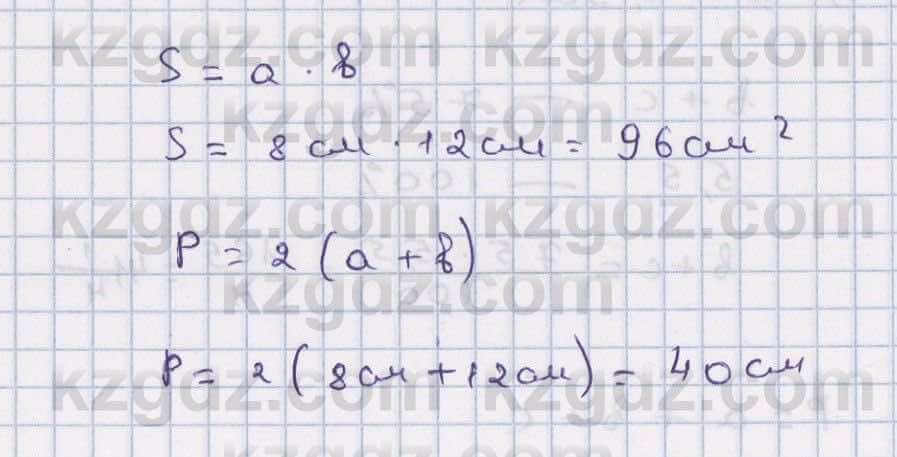 kzgdz.com kzgdz.com
S = a · b
kzgdz.com
S = 8 см · 12 см = 96 см²
kzgdz.com kzgdz.com
P = 2 (a + b)
kzgdz.com
P = 2 (8 см + 12 см) = 40 см
kzgdz.com kzgdz.com